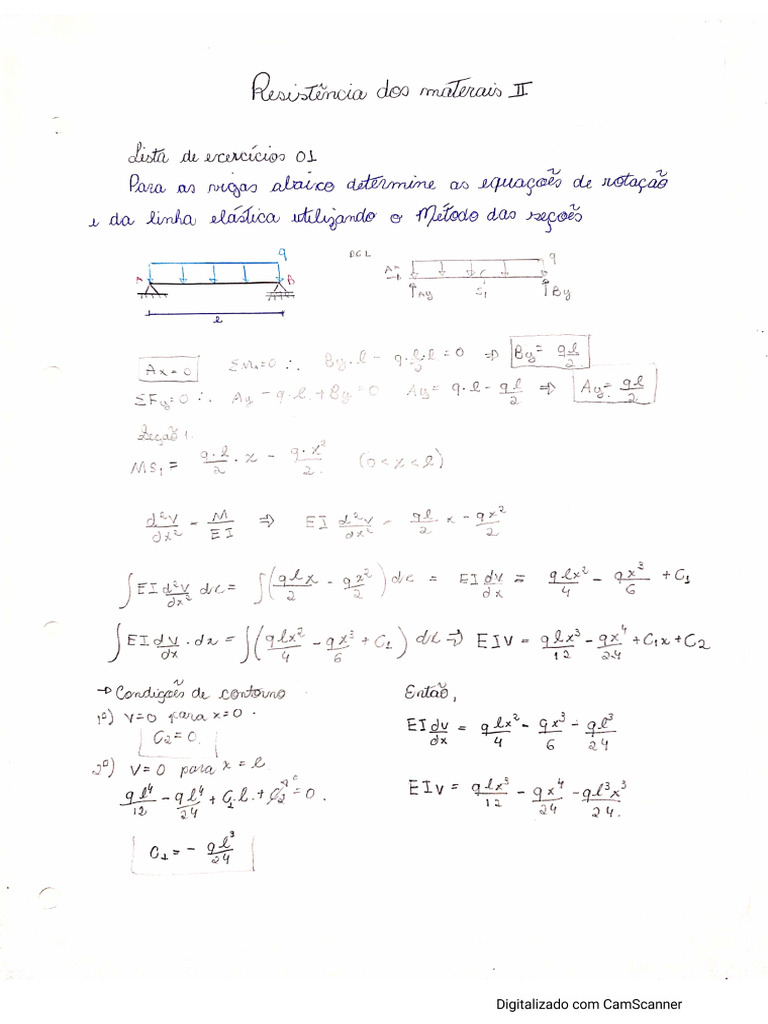 Resistência dos materais II
Lista de exercícios 01
Para as vigas abaixo determine as equações de rotação
e da linha elástica utilizando o Método das seções
q
A B
l
DCL
q
Ax
Ay S1 By
Ax = 0 ΣMA=0 ∴ By·l - q·l·l/2 = 0 ⇒ By = ql/2
ΣFy=0 ∴ Ay - q·l + By = 0 Ay = q·l - ql/2 ⇒ Ay = ql/2
Seção 1.
MS1 = q·l/2 · x - q·x²/2 (0 < x < l)
d²v/dx² = M/EI ⇒ EI d²v/dx² = ql/2 x - qx²/2
∫EI d²v/dx² dx = ∫(qlx/2 - qx²/2) dx = EI dv/dx = qlx²/4 - qx³/6 + C1
∫EI dv/dx · dx = ∫(qlx²/4 - qx³/6 + C1) dx ⇒ EIV = qlx³/12 - qx⁴/24 + C1x + C2
→ Condições de contorno
1º) V=0 para x=0.
C2=0.
2º) V=0 para x=l
ql⁴/12 - ql⁴/24 + C1·l + C2 = 0.
C1 = - ql³/24
Então,
EI dv/dx = qlx²/4 - qx³/6 - ql³/24
EIv = qlx³/12 - qx⁴/24 - ql³x³/24.
Digitalizado com CamScanner